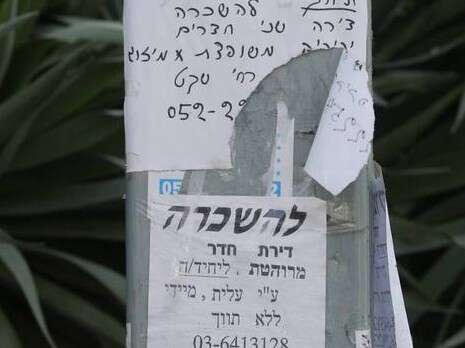 להשכרה
דירה שני חדרים
יחידה משופצת + מיזוג
רח' שקט
052-22
05
להשכרה
דירת חדר
מרוהטת . ליחיד/ה
ע"י עלית , מיידי
ללא תווך
03-6413128